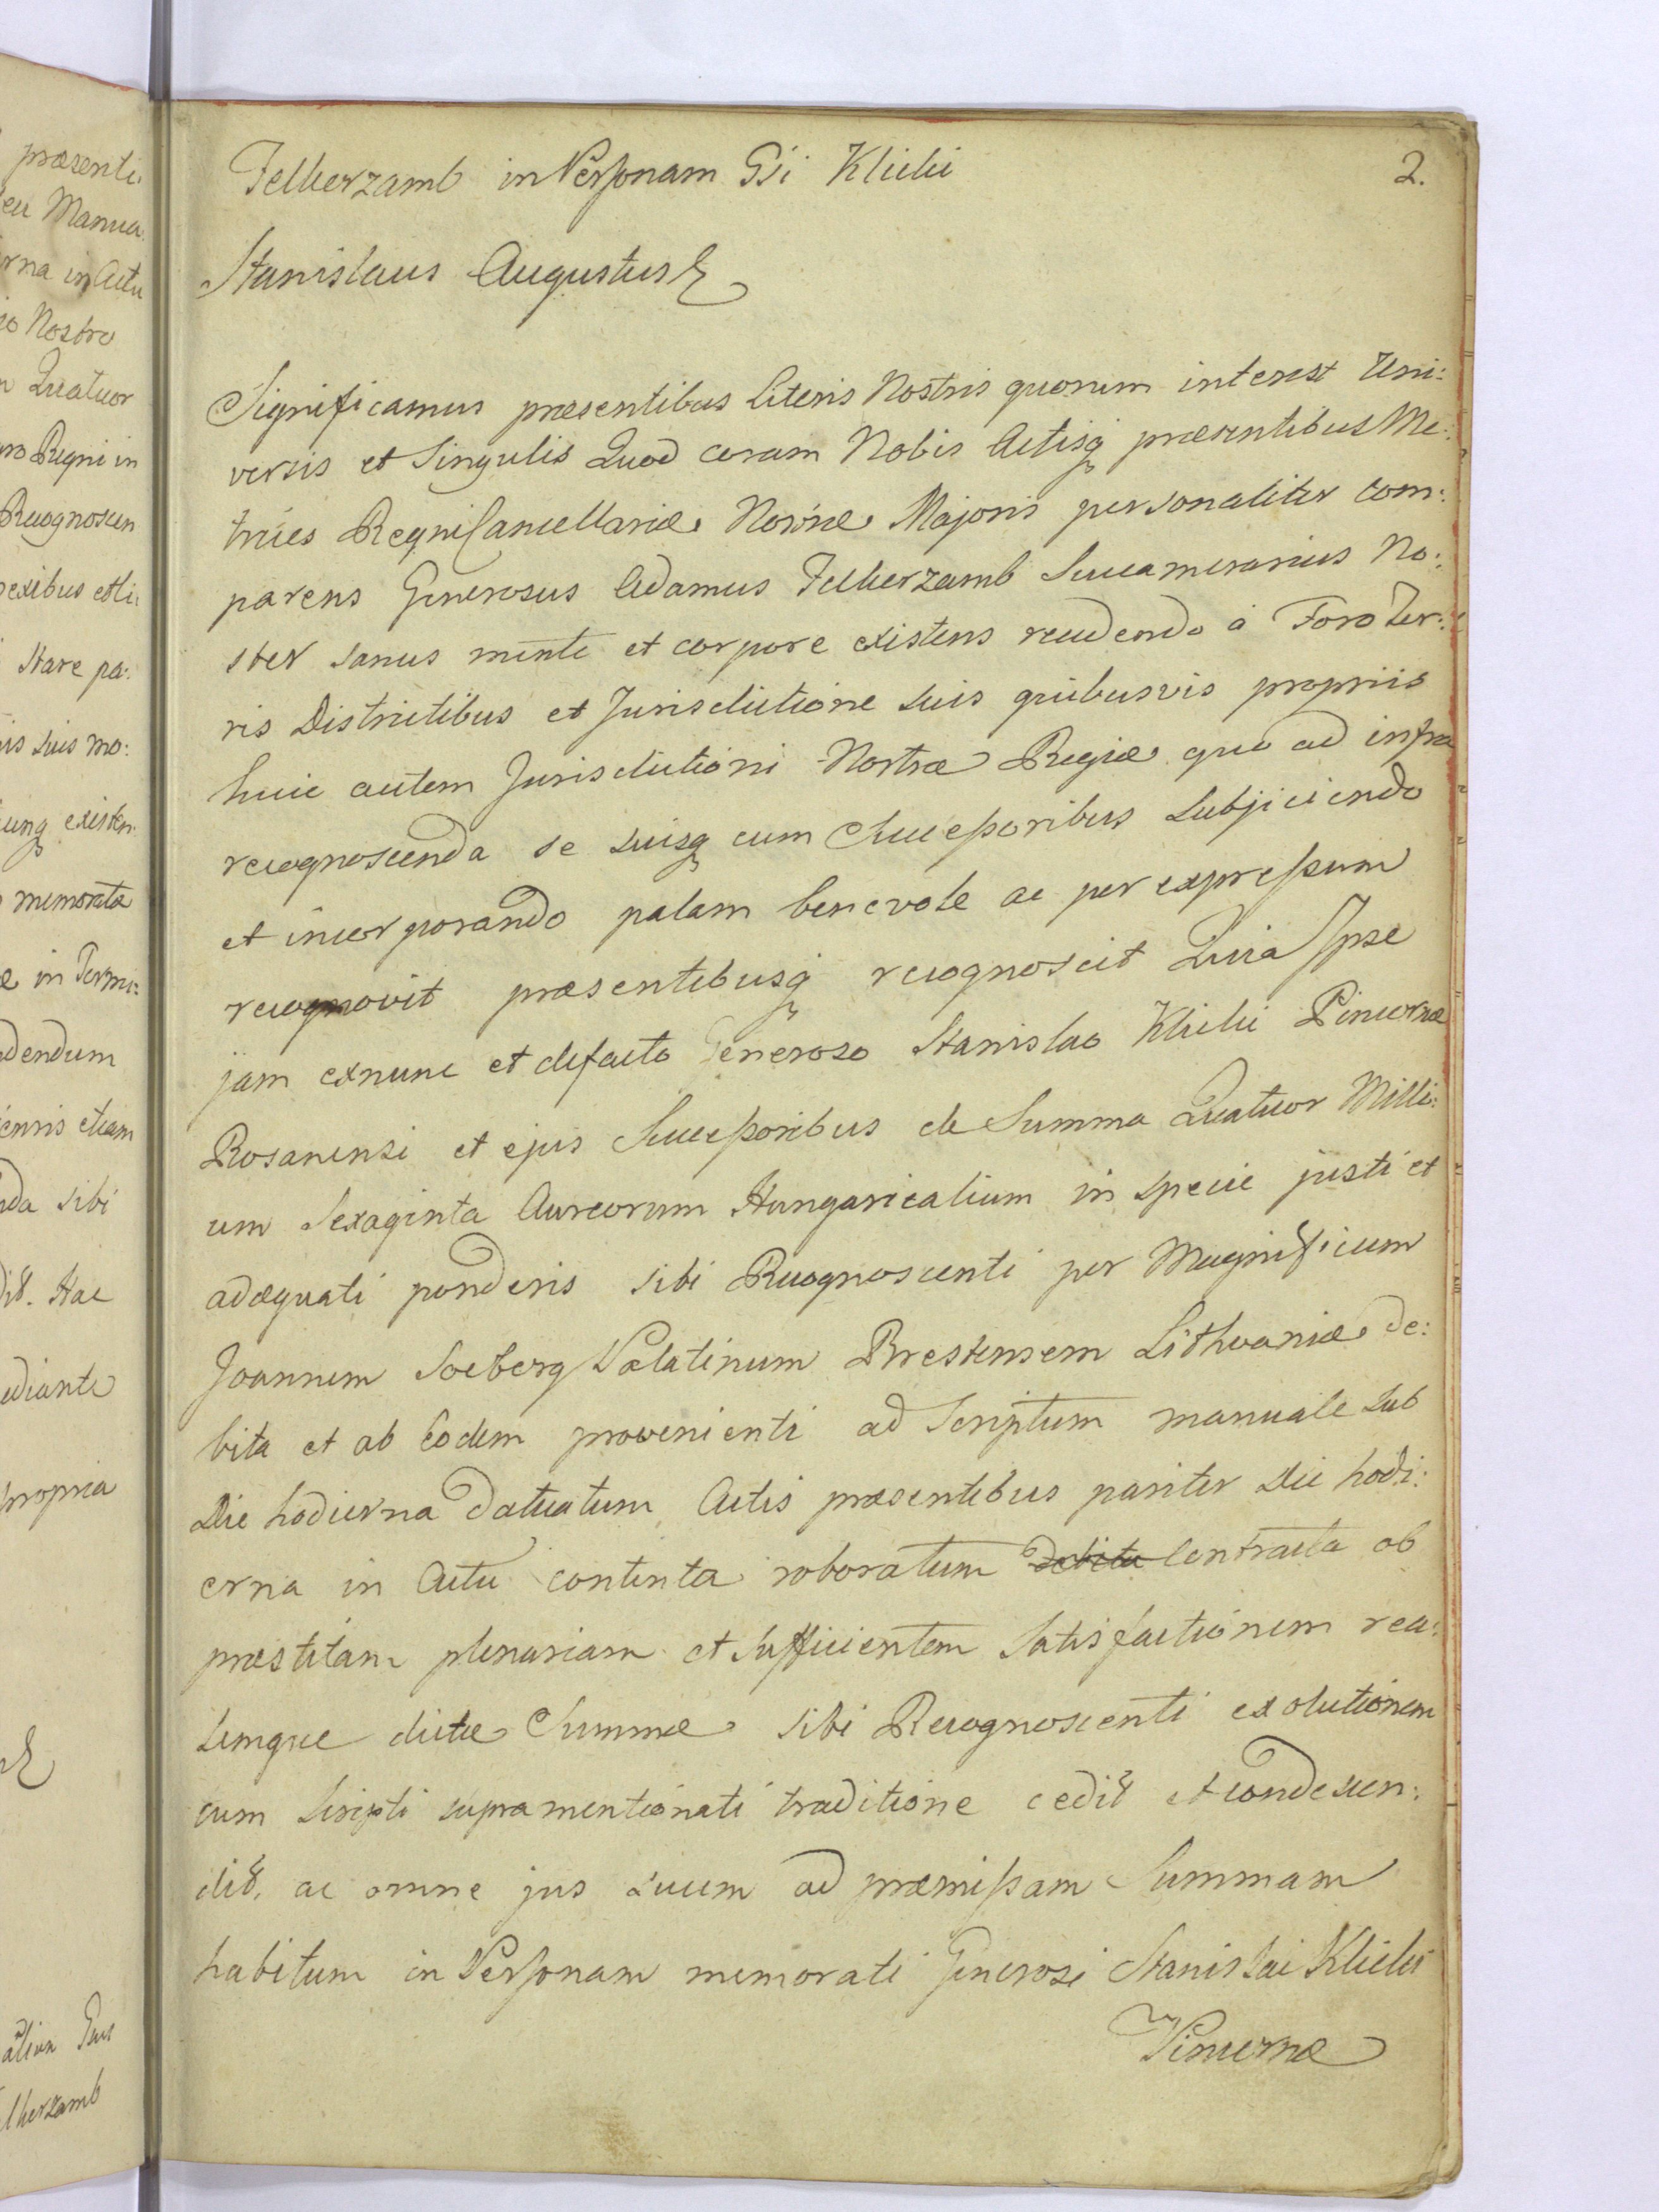 2.
Felkerzamb in Personam Gsi Klicki
Stanislaus Augustus &
Significamus præsentibus Literis Nostris quorum interest Uni:
versis et Singulis Quod coram Nobis Actisq præsentibus Me:
trices Regni Cancellariæ Nostræ Majoris personaliter com:
parens Generosus Adamus Felkerzamb Succamerarius No:
ster sanus mente et corpore existens recedendo à Foro Ter:
ris Districtibus et Jurisdictione suis quibusvis propriis
huic autem Jurisdictioni Nostræ Regiæ quo ad infra
recognoscenda se suisq cum Successoribus subjiciendo
et incorporando palam benevole ac per expressum
recognovit præsentibusq recognoscit Quia Ipse
jam exnunc et defacto Generoso Stanislao Klicki Pincernæ
Rosanensi et ejus Successoribus de Summa Quatuor Milli:
um Sexaginta Aureorum Hungaricalium in specie justi et
adæquati ponderis sibi Recognoscenti per Magnificum
Joannem Soeberg Palatinum Brestensem Lithvaniæ de:
bita et ab Eodem provenienti ad Scriptum manuale sub
Die hodierna Datuatum Actis præsentibus pariter Die hodi:
erna in Actu contenta roboratum debita Contracta ob
præstitam plenariam et sufficientem Satisfactionem rea:
lemque dictæ Summæ sibi Recognoscenti exolutionem
cum Scripti supramentionati traditione cedit et condescen:
dit, ac omne jus suum ad præmissam Summam
habitum in Personam memorati Generosi Stanislai Klicki
Pincernæ